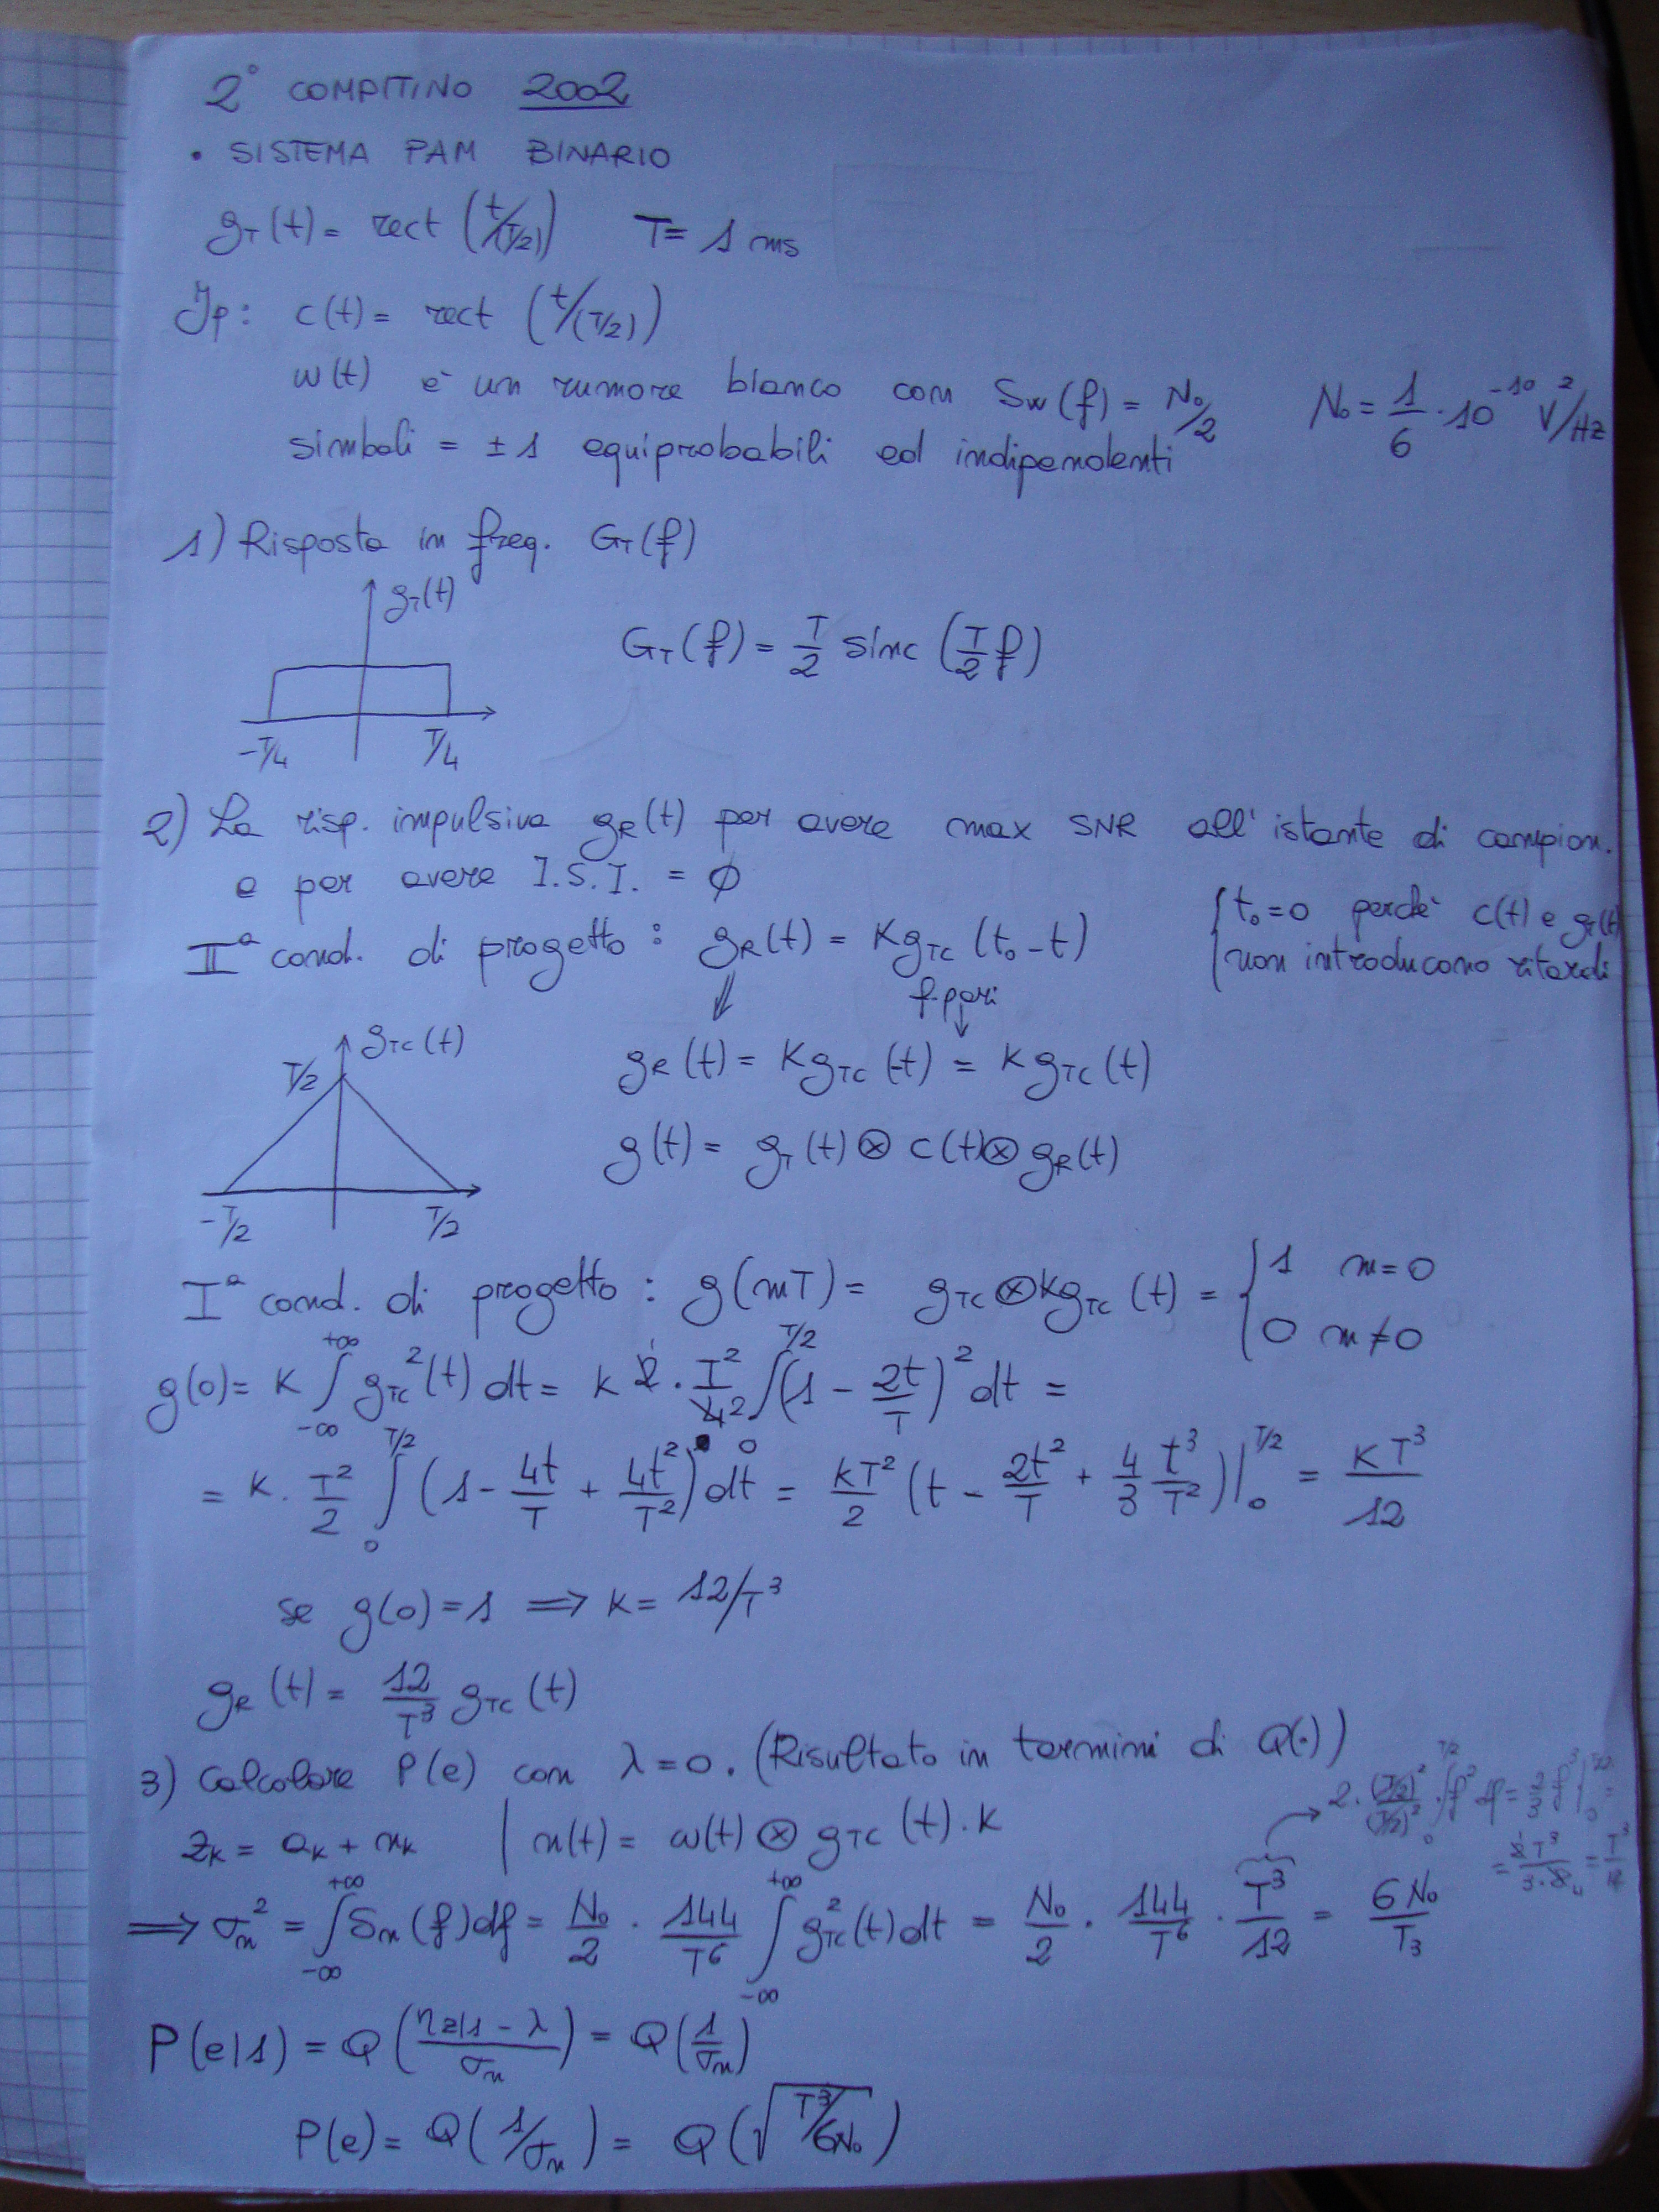 2° COMPITINO 2002
• SISTEMA PAM BINARIO
g_T(t) = rect (t/(T/2)) T = 1 ms
Ip: c(t) = rect (t/(T/2))
w(t) è un rumore bianco con S_w(f) = N_0/2 N_0 = 1/6 · 10^-10 V^2/Hz
simboli = ±1 equiprobabili ed indipendenti
1) Risposta in freq. G_T(f)
g_T(t)
G_T(f) = T/2 sinc (T/2 f)
-T/4 T/4
2) La risp. impulsiva g_R(t) per avere max SNR all'istante di campion.
e per avere I.S.I. = ∅
II^a cond. di progetto : g_R(t) = K g_TC (t_0 - t) { t_0 = 0 perchè c(t) e g_T(t) non introducono ritardi
f. pari
g_TC(t)
T/2 g_R(t) = K g_TC (-t) = K g_TC (t)
g(t) = g_T(t) ⊗ c(t) ⊗ g_R(t)
-T/2 T/2
I^a cond. di progetto : g(mT) = g_TC ⊗ K g_TC (t) = { 1 m=0
0 m≠0
g(0) = K ∫_{-∞}^{+∞} g_TC^2(t) dt = K 2 · T^2/4 ∫_0^{T/2} (1 - 2t/T)^2 dt =
= K · T^2/2 ∫_0^{T/2} (1 - 4t/T + 4t^2/T^2) dt = KT^2/2 (t - 2t^2/T + 4/3 t^3/T^2) |_0^{T/2} = KT^3/12
se g(0) = 1 ⟹ K = 12/T^3
g_R(t) = 12/T^3 g_TC(t)
3) Calcolare P(e) con λ = 0. (Risultato in termini di Q(·))
z_K = a_K + n_K | n(t) = w(t) ⊗ g_TC (t) · K
⟹ σ_n^2 = ∫_{-∞}^{+∞} S_n(f) df = N_0/2 · 144/T^6 ∫_{-∞}^{+∞} g_TC^2(t) dt = N_0/2 · 144/T^6 · T^3/12 = 6N_0/T_3
P(e|1) = Q (η_z|1 - λ / σ_n) = Q (1/σ_n)
P(e) = Q (1/σ_n) = Q (√(T^3/6N_0))